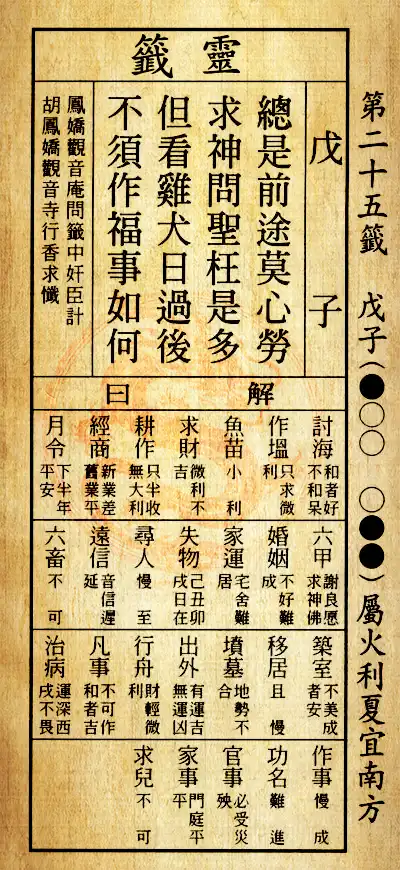 第二十五籤 戊子(●○○ ○●●)屬火利夏宜南方
靈籤
戊子
總是前途莫心勞
求神問聖枉是多
但看雞犬日過後
不須作福事如何
鳳嬌觀音庵問籤中奸臣計
胡鳳嬌觀音寺行香求懺
解曰
討海 和者好不和呆
作塭 只求微利
魚苗 小利
求財 微利不吉
耕作 只半收無大利
經商 新業差舊業平
月令 下半年平安
六甲 謝良愿求神佛
婚姻 不好難成
家運 宅舍難居
失物 己丑卯戌日在
尋人 慢至
遠信 音信遲延
六畜 不可
築室 不美成者安
移居 且慢
墳墓 地勢不合
出外 有運吉無運凶
行舟 財輕微利
凡事 不可作和者吉
治病 運深西戌不畏
作事 慢成
功名 難進
官事 必受災殃
家事 門庭平平
求兒 不可